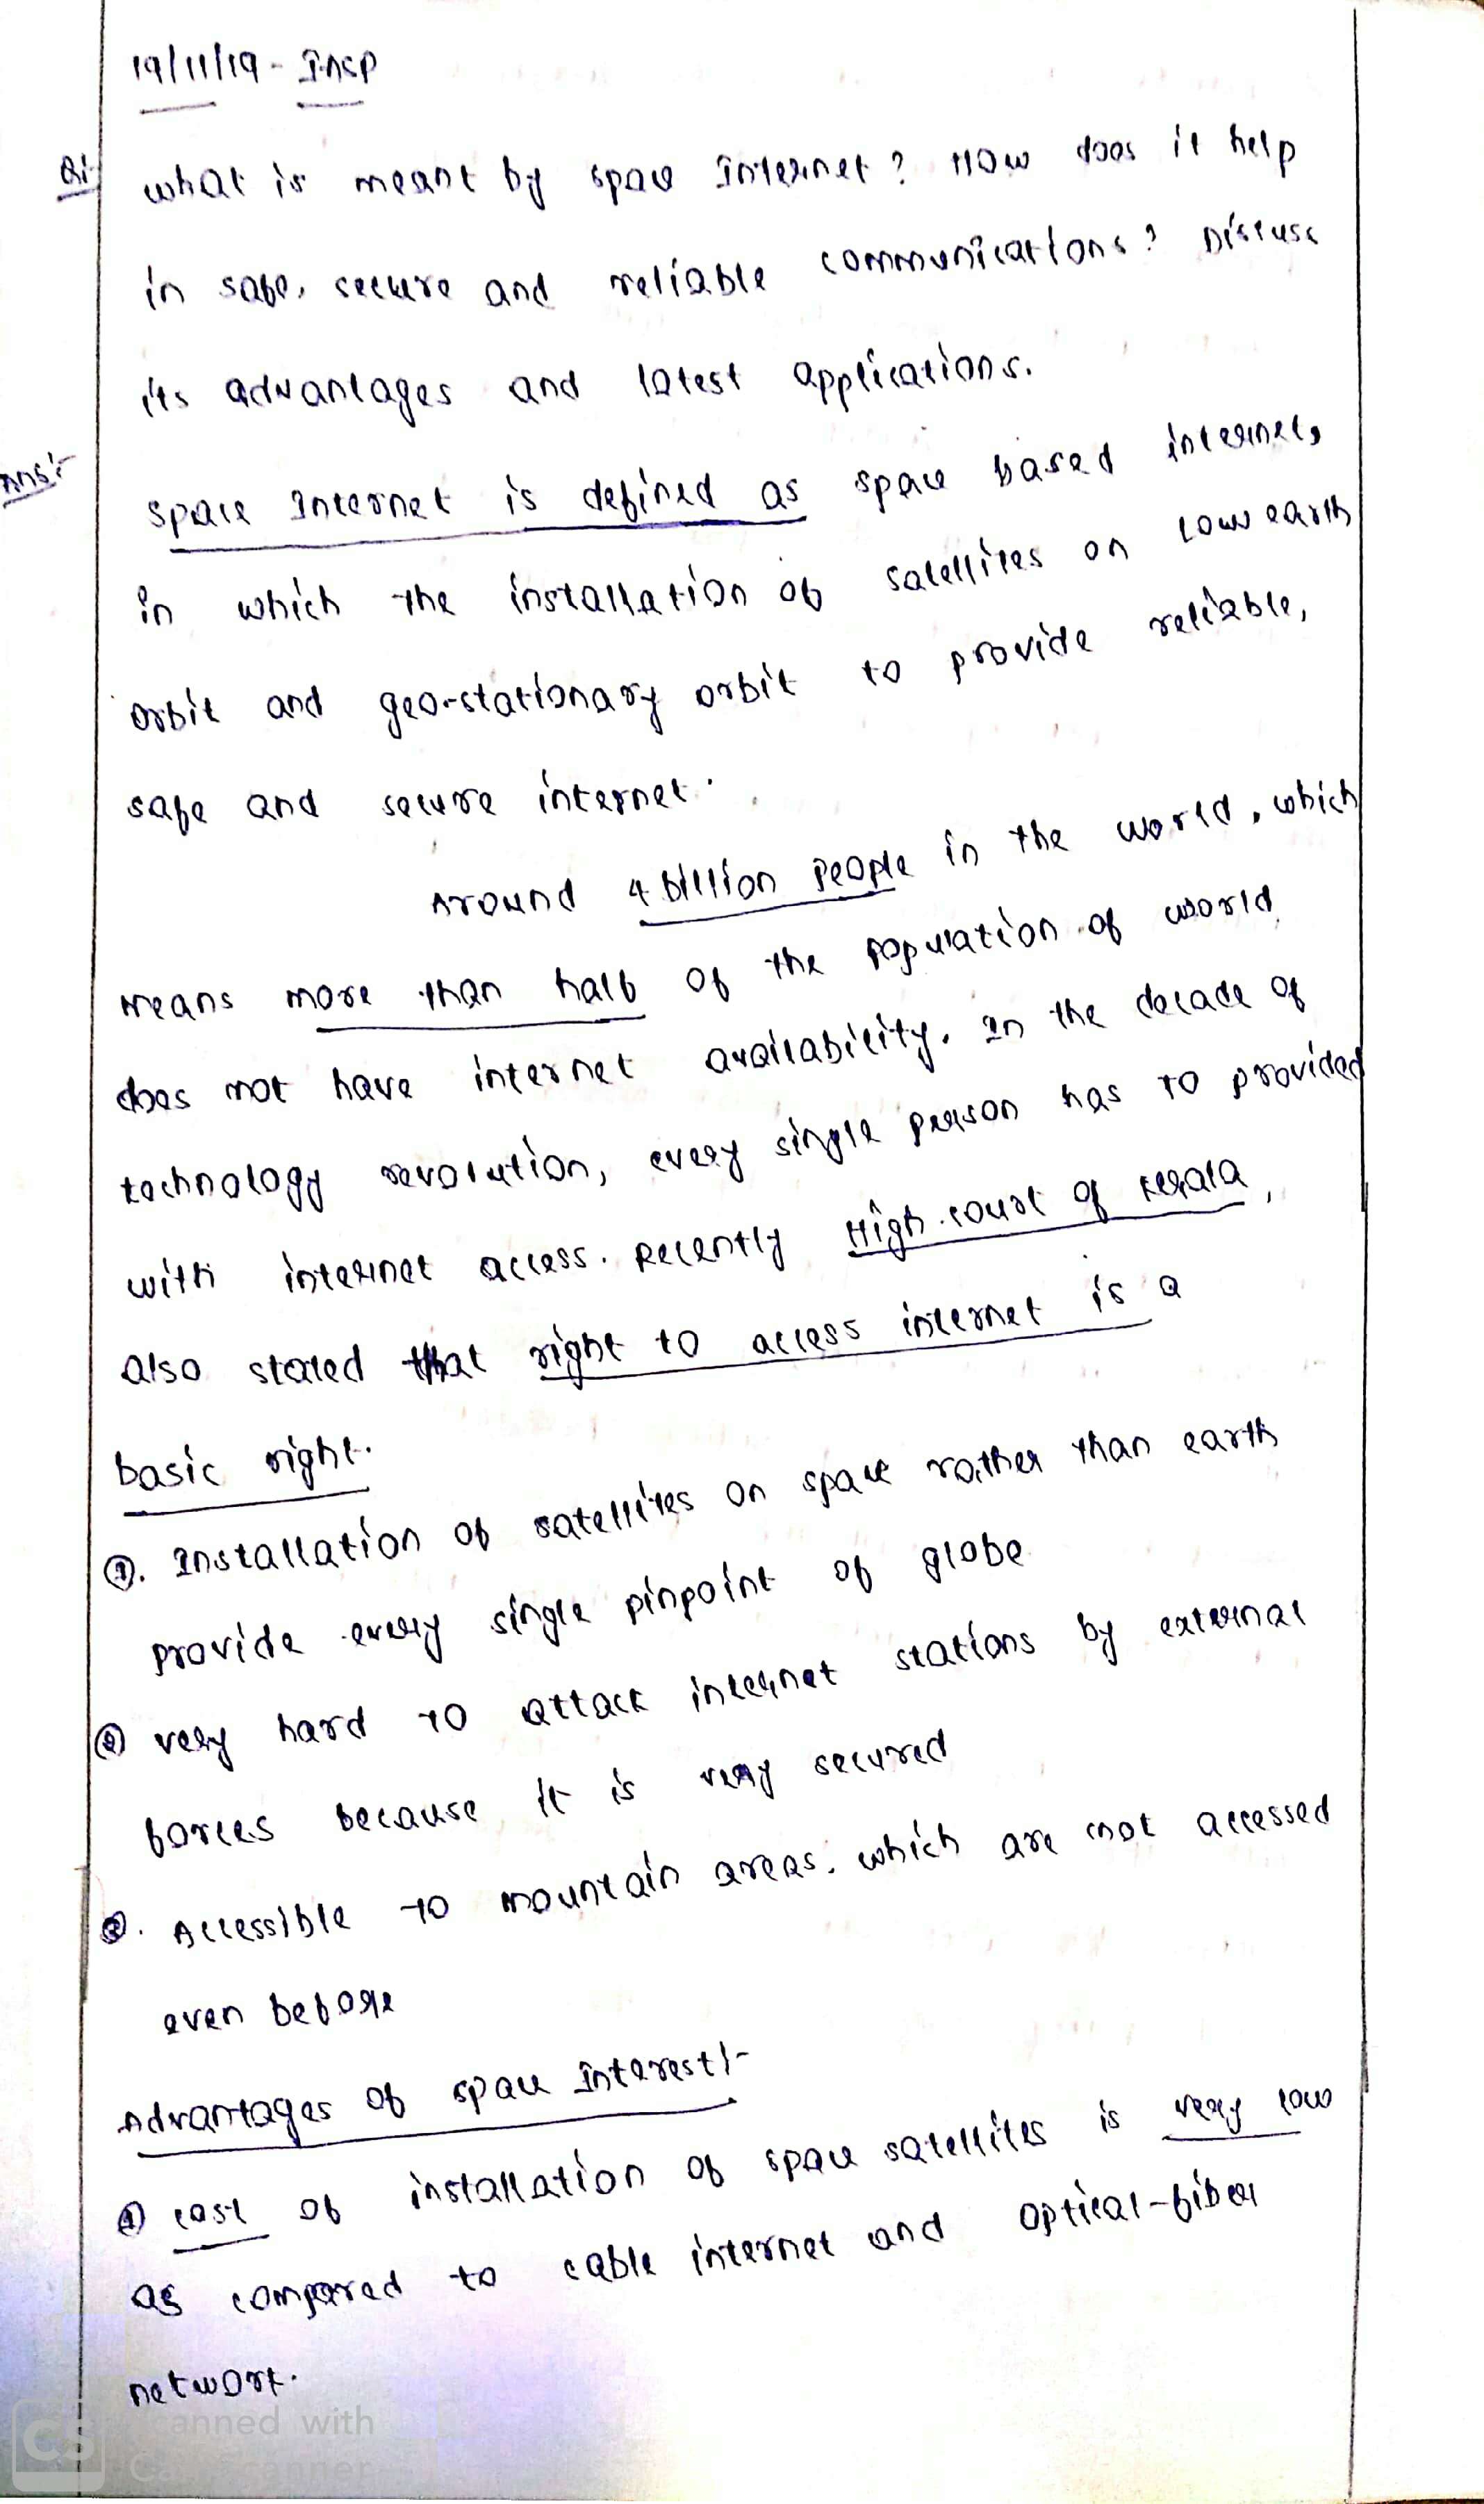 19/11/19 - Insp
Q1 what is meant by space Internet? How does it help
in safe, secure and reliable communications? Discuss
its advantages and latest applications.
Ans:- space Internet is defined as space based internet,
in which the installation of satellites on low earth
orbit and geo-stationary orbit to provide reliable,
safe and secure internet.
Around 4 billion people in the world, which
means more than half of the population of world
does not have internet availability. In the decade of
technology revolution, every single person has to provided
with internet access. Recently High court of Kerala,
also stated that right to access internet is a
basic right.
①. Installation of satellites on space rather than earth
provide every single pinpoint of globe
② very hard to attack internet stations by external
forces because it is very secured
③. Accessible to mountain areas. which are not accessed
even before
Advantages of space Interest:-
① cost of installation of space satellites is very low
as compared to cable internet and optical-fiber
network.
CS Scanned with
CamScanner